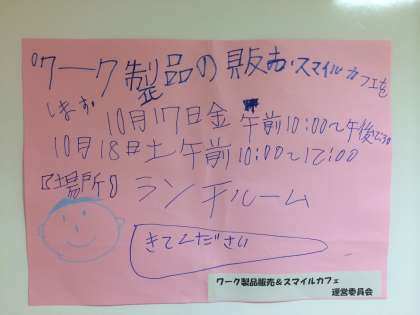 ワーク製品の販お・スマイルカフェを
します
10月17日金 午前10:00〜午後2:30
10月18日土午前10:00〜12:00
『場所』 ランチルーム
きてください
ワーク製品販売&スマイルカフェ
運営委員会